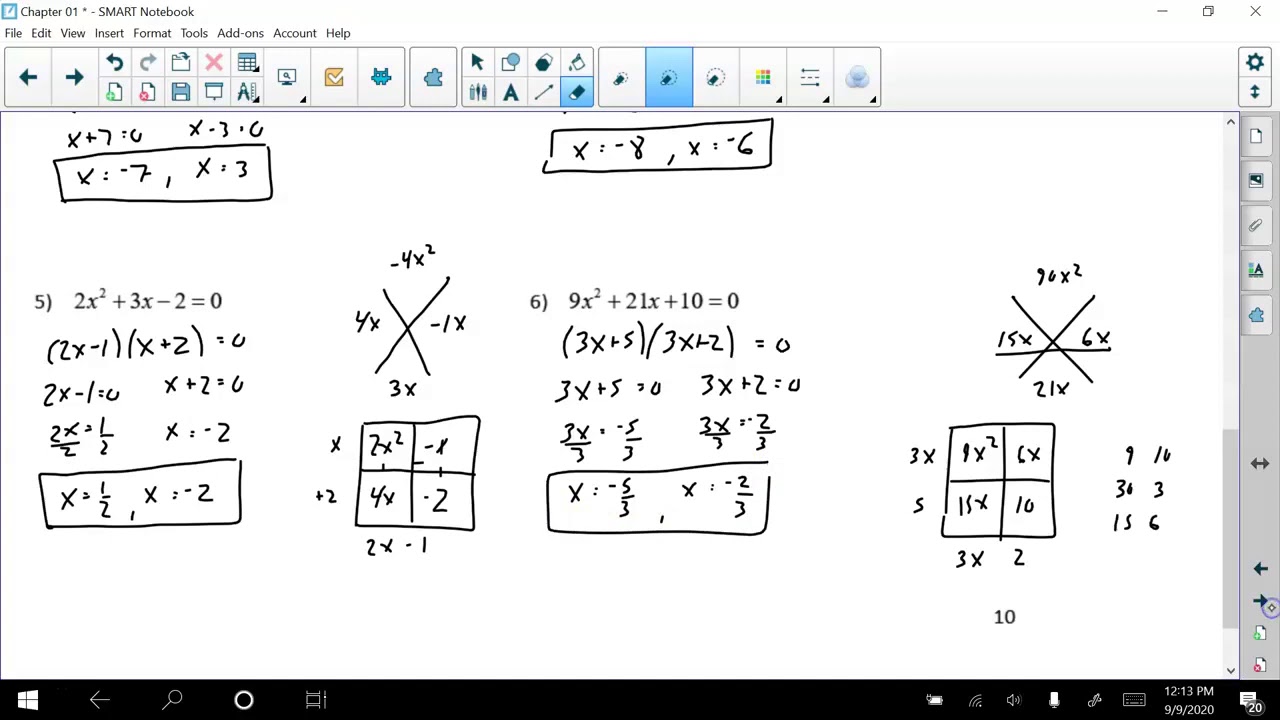 Chapter 01 * - SMART Notebook
File Edit View Insert Format Tools Add-ons Account Help
x+7=0 x-3=0
x=-7, x=3
x=-8, x=-6
5) 2x² + 3x − 2 = 0
(2x-1)(x+2) = 0
2x-1=0 x+2=0
2x/2 = 1/2 x=-2
x=1/2, x=-2
-4x²
4x -1x
3x
x 2x² -x
+2 4x -2
2x -1
6) 9x² + 21x + 10 = 0
(3x+5)(3x+2) = 0
3x+5=0 3x+2=0
3x/3 = -5/3 3x/3 = -2/3
x=-5/3, x=-2/3
90x²
15x 6x
21x
3x 9x² 6x
5 15x 10
3x 2
9 10
30 3
15 6
10
12:13 PM
9/9/2020
20